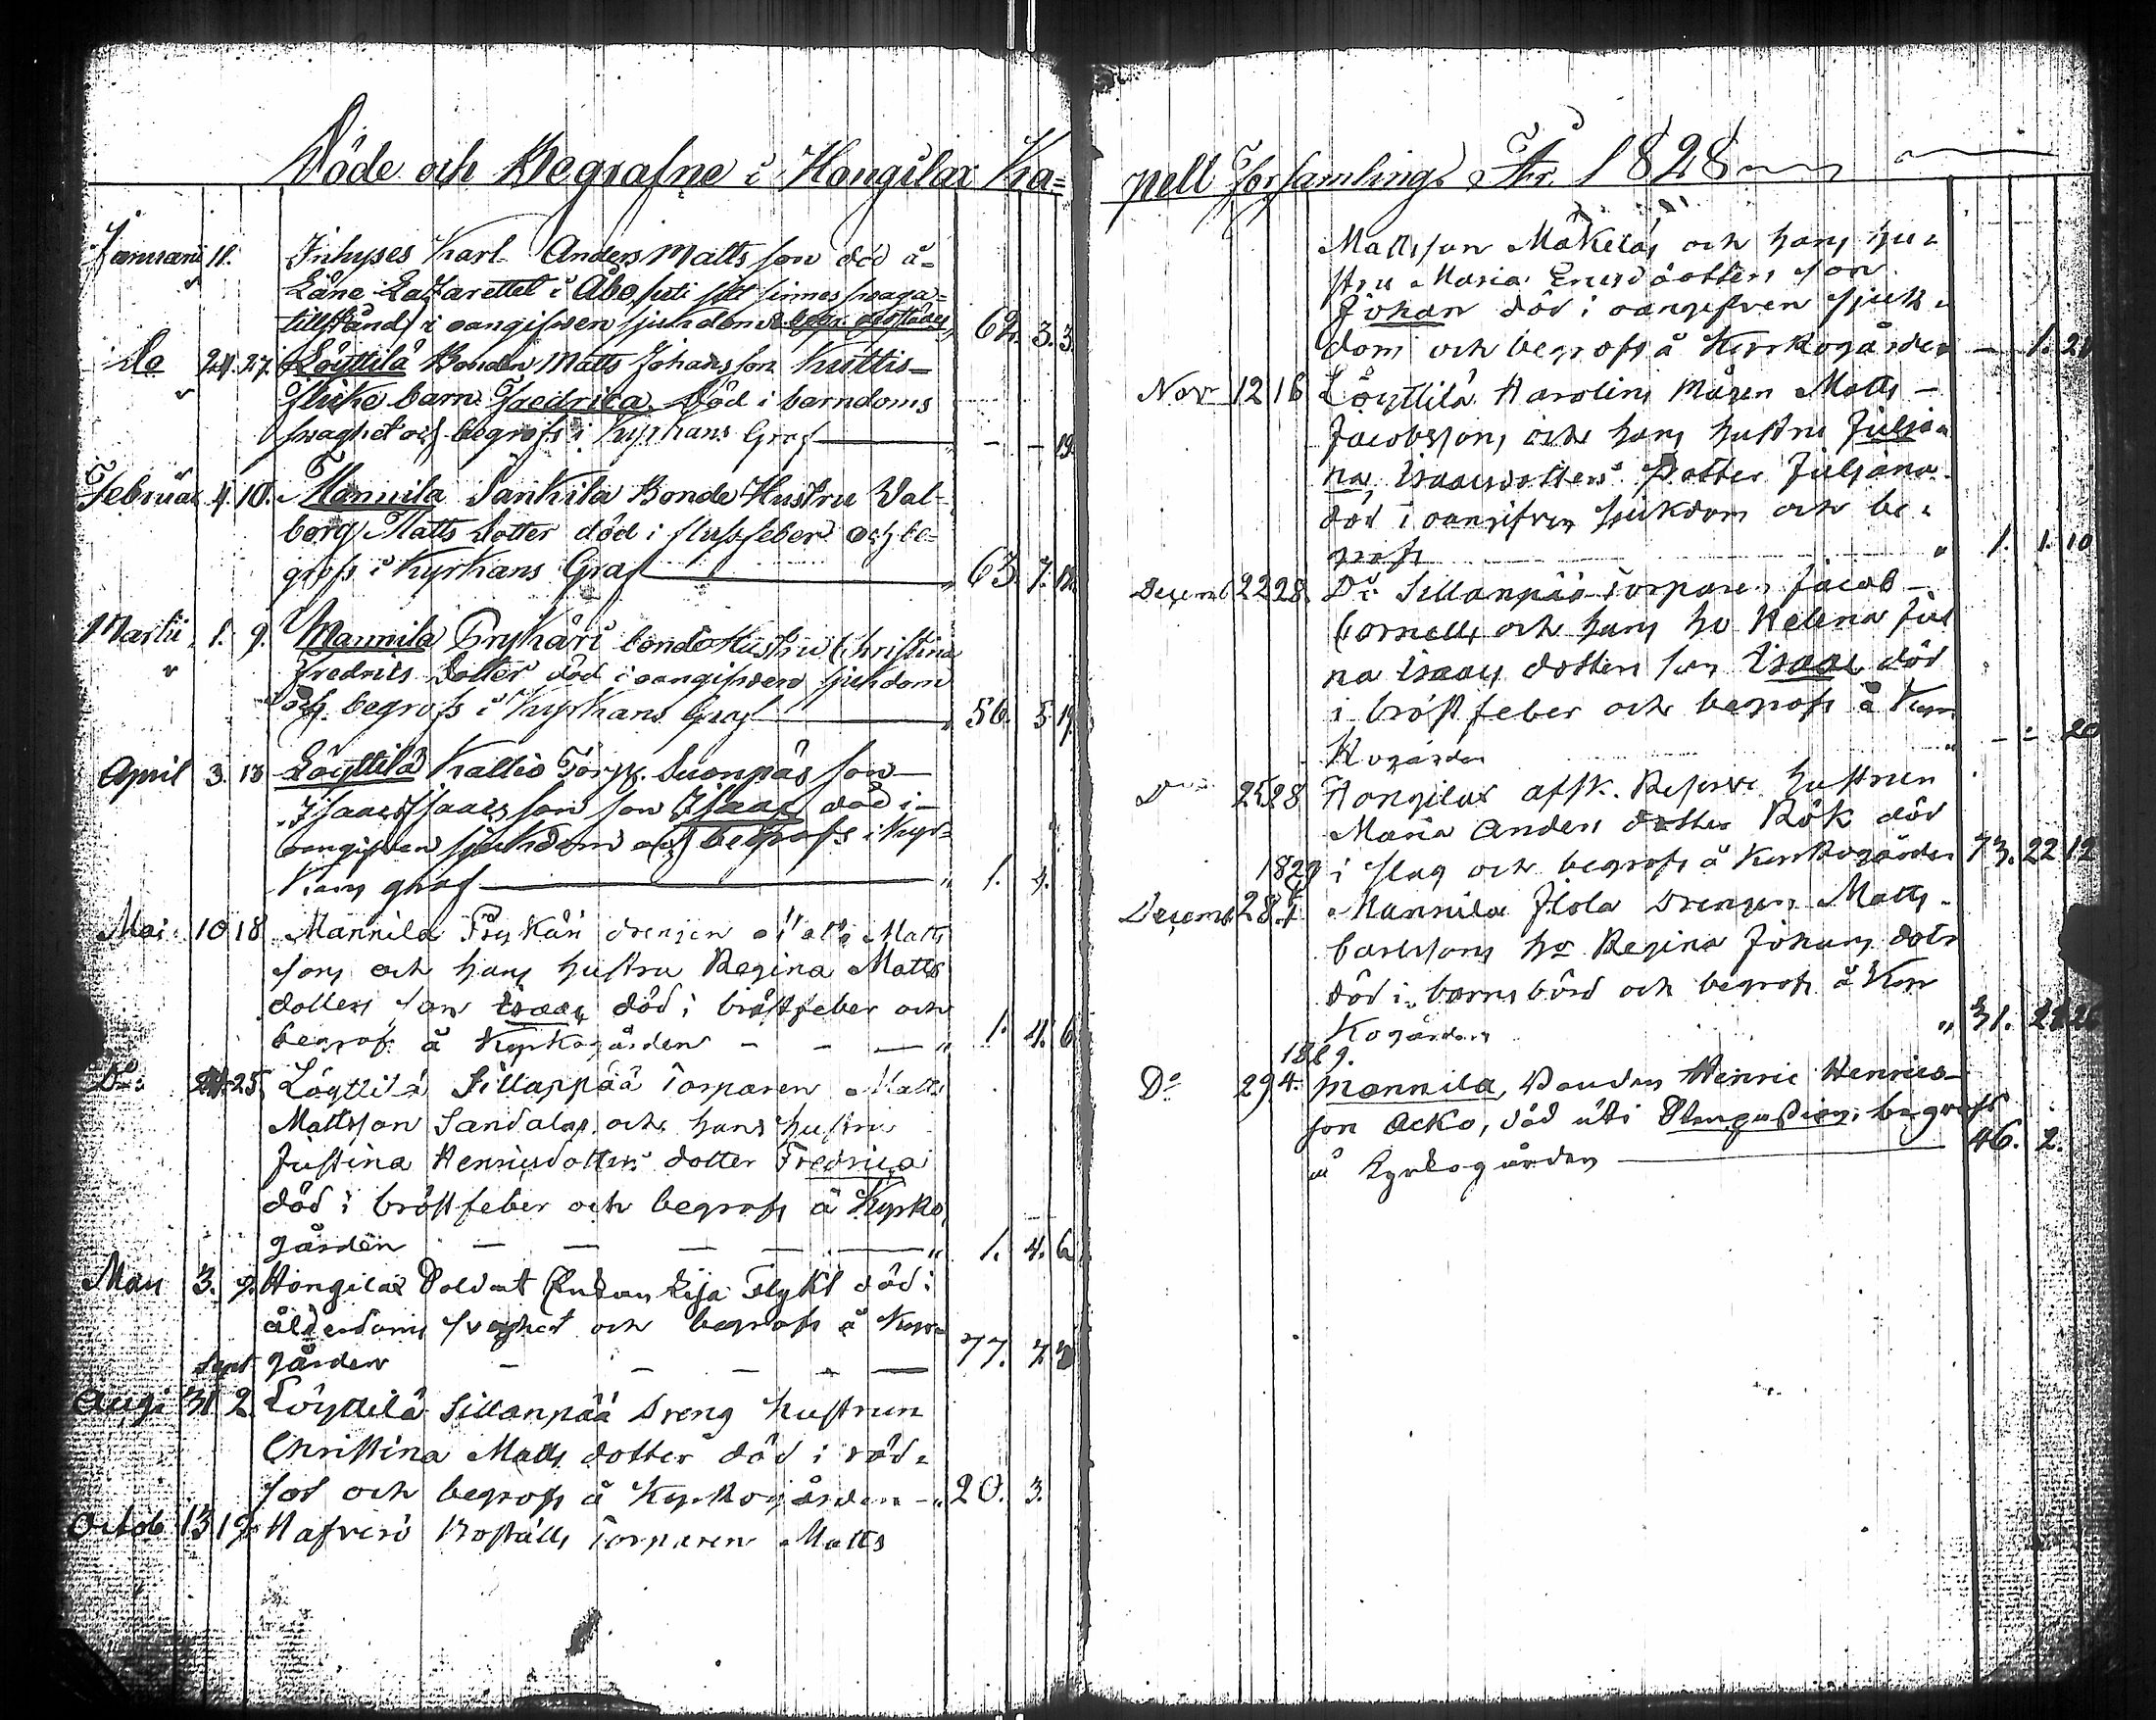 Döde och Begrafne i Hongilax Ka=
Januarii 11. Inhyses Karl Anders Matts son död å=
Läne Lazarettet i Åbo, uti sitt sinnes svaga=
tillstånd, i oangifven sjukdom & begr. 62. 3. 3.
Do 24. 27. Löyttilä Bonden Matts Johansson Kuttis=
flicke barn Fredrica, Död i barndoms
svaghet och begrofs i Kyrkans Graf — - - 19.
Februar 4. 10. Mannila Sankila Bonde Hustru Val-
borg Matts Dotter död i fluss feber och be=
grofs i Kyrkans Graf — " 63. 7.
Martii 1. 9. Mannila Pryskäri bonde Hustru Christina
Fredrics Dotter död i oangifven sjukdom
och begrofs i Kyrkans Graf — " 56. 5. 19.
April 3. 13 Löyttilä Kallio Torp. Suonpäs son
Isaac Isaacs son son Isaac död i
oangifven sjukdom och begrofs i Kyr=
kans graf — " 1. 4.
Mai 10 18 Mannila Pryskäri drengen Matts Matts
sons och hans hustru Regina Matts
dotters son Isaac död i bröstfeber och
begrofs å Kyrkogården - - — " 1. 4. 6
Do 25 Löyttilä Sillanpää Torparen Matts
Mattsson Sandalas och hans hustru
Justina Henricsdotters dotter Fredrica
död i bröst feber och begrofs å Kyrko
gården — — — — — " 1. 4. 6
3. 9. Hongilax Soldat Enkan Lisa Flykt död i
ålderdoms svaghet och begrofs å Kyrko
Sept gården — — — — 77. 7.
Augi 31 2. Löyttilä Sillanpää Dreng hustrun
Christina Matts dotter död i röd=
sot och begrofs å Kyrkogården - " 20. 3.
Octob 13 19 Hafveri Boställs Torparen Matts
pell Församling År 1828
Mattsson Mäkeläs och hans hu=
stru Maria Ericsdotters son
Johan död i oangifven sjuk=
dom och begrofs å Kyrkogården — 1. 21
Nov 12 16 Löyttilä Karolins Mågen Matts
Jacobssons och hans hustru Julia=
na Isaacsdotters Dotter Juliana
död i oangifven sjukdom och be=
grofs " 1. 1. 10
Decemb 22 28. Do Sillanpää Torparen Jacob
Cornells och hans ho Helena Juli
na Isaacs dotters son Isaac död
i bröst feber och begrofs å Kyr
kogården " - - 20
Do 25 28 Hongilax afsk. Reserve hustrun
Maria Anders dotter Rök död
1829 i slag och begrofs å Kyrkogården 73. 22 12
Decemb 28. 1. Mannila Jlola Drengen Matts
Carlssons ho Regina Johans dotr
död i barns börd och begrofs å Kyr
kogården " 31. 21
1829.
Do 29 4. Mannila, Bonden Henric Henrics
son Acko, död uti begrofs
å Kyrkogården — 46. 2.